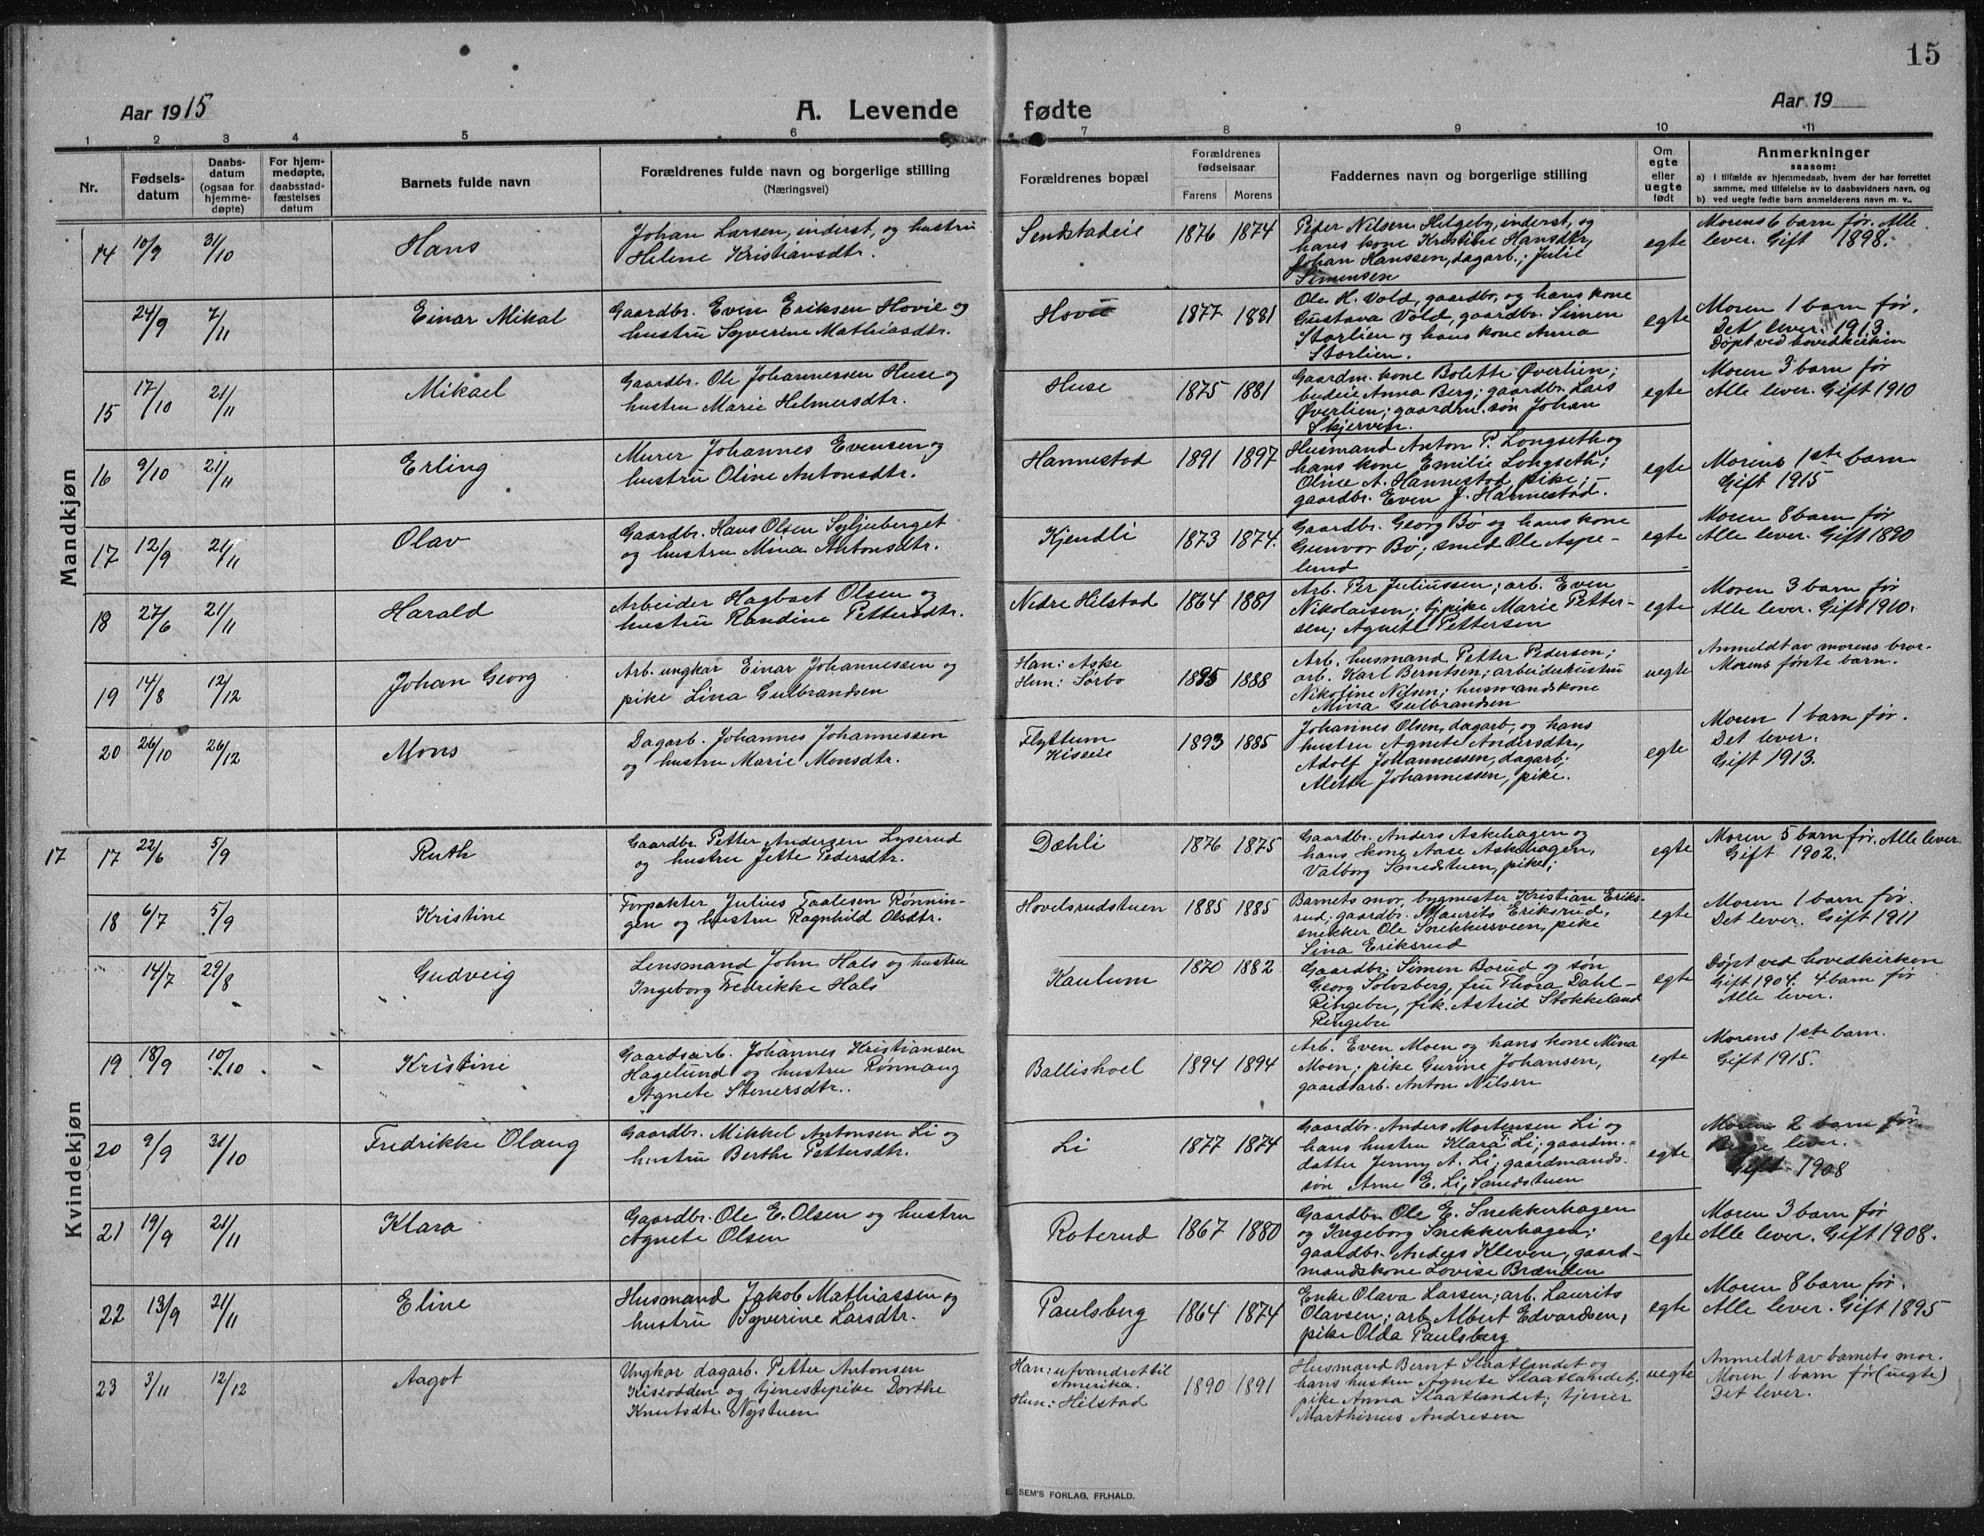 15
Aar 1915
A. Levende
fødte
Aar 19
1 2 3 4 5 6 7 8 9 10 11
Nr.
Fødsels-
datum
Daabs-
datum
(ogsaa for
hjemme-
døpte)
For hjem-
medøpte,
daabsstad-
fæstelses
datum
Barnets fulde navn
Forældrenes fulde navn og borgerlige stilling
(Næringsvei)
Forældrenes bopæl
Forældrenes
fødselsaar
Farens Morens
Faddernes navn og borgerlige stilling
Om
egte
eller
uegte
født
Anmerkninger
saasom:
a) I tilfælde av hjemmedaab, hvem der har forrettet
samme, med tilføielse av to daabsvidners navn, og
b) ved uegte fødte barn anmelderens navn m. v..
Mandkjøn
14 10/9 31/10 Hans
Johan Larsen, inderst, og hustru
Helene Kristiansdtr.
Sendstadeie 1876 1874
Peder Nilsen Helgeby, inderst, og
hans kone Kristine Hansdtr,
Johan Hanssen, dagarb.; Julie
Simensen
egte
Morens 6 barn før. Alle
lever. Gift 1898.
24/9 7/11 Einar Mikal
Gaardbr. Even Eriksen Hovie og
hustru Syverine Mathiasdtr.
Hovie 1877 1881
Ole H. Vold, gaardbr, og hans kone
Gustava Vold, gaardbr. Simen
Storlien og hans kone Anna
Storlien.
egte
Moren 1 barn før.
Det lever. Gift 1913.
Døpt ved hovedkirken
15 17/10 21/11 Mikael
Gaardbr. Ole Johannessen Huse og
hustru Marie Helmersdtr.
Huse 1875 1881
Gaardm. kone Bolette Øverlien;
budeie Anna Berg; gaardbr. Lars
Øverlien; gaardm. søn Johan
Skjerven.
egte
Moren 3 barn før
Alle lever. Gift 1910
16 9/10 21/11 Erling
Murer Johannes Evensen og
hustru Oline Antonsdtr.
Hannestad 1891 1897
Husmand Anton P. Longseth og
hans kone Emilie Longseth;
Oline A. Hannestad, pike;
gaardbr. Even J. Hannestad.
egte
Morens 1ste barn
Gift 1915
17 12/9 21/11 Olav
Gaardbr. Hans Olsen Syljuberget
og hustru Mina Antonsdtr.
Kjendli 1873 1874.
Gaardbr. Georg Bø og hans kone
Gunvor Bø; smed Ole Aspe-
lund
egte
Moren 8 barn før
Alle lever. Gift 1890
18 27/6 21/11 Harald
Arbeider Hagbart Olsen og
hustru Randine Pettersdtr.
Nedre Hilstad 1864 1881
Arb. Per Juliussen; arb. Even
Nikolaisen; tj.pike Marie Petter-
sen; Agnete Pettersen
egte
Moren 3 barn før
Alle lever. Gift 1910.
19 14/8 12/12 Johan Georg
Arb. ungkar Einar Johannessen og
pike Lina Gulbrandsen
Han: Aske
Hun: Sørbo
1895 1888
Arb. husmand Petter Pedersen;
arb. Karl Berntsen; arbeiderhustru
Nikoline Nilsen; husmandskone
Mina Gulbrandsen
uegte
Anmeldt av morens bror.
Morens første barn.
20 26/10 26/12 Mons
Dagarb. Johannes Johannessen
og hustru Marie Monsdtr.
Flyttum
Kisseie
1893 1885
Johannes Olsen, dagarb, og hans
hustru Agnete Andersdtr.,
Adolf Johannessen, dagarb;
Alette Johannessen, pike.
egte
Moren 1 barn før.
Det lever.
Gift 1913.
Kvindekjøn
17 17 22/6 5/9 Ruth
Gaardbr. Petter Andersen Lyserud
og hustru Jette Pedersdtr.
Dæhli 1876 1875
Gaardbr. Anders Askehagen og
hans kone Aase Askehagen,
Valborg Smedstuen, pike;
egte
Moren 5 barn før. Alle lever.
Gift 1902.
18 6/7 5/9 Kristine
Forpakter Julius Taalesen Rønnin-
gen og hustru Ragnhild Olsdtr.
Hovelsrudstuen 1885 1885
Barnets mor, bygmester Kristian Eriks-
rud, gaardbr. Maurits Eriksrud,
snekker Ole Snekkersveen, pike
Lina Eriksrud
egte
Moren 1 barn før.
Det lever. Gift 1911
14/7 29/8 Gudveig
Lensmand John Hals og hustru
Ingeborg Fredrikke Hals
Kaulum 1870 1882
Gaardbr. Simen Borud og søn
Georg Solvsberg, fru Thora Dahl-
Ringebu, frk. Astrid Stokkeland
Ringebu
egte
Døpt ved hovedkirken
Gift 1904. 4 barn før
Alle lever.
19 18/9 10/10 Kristine
Gaardsarb. Johannes Kristiansen
Hagelund og hustru Rønnaug
Agnete Stenersdtr.
Ballishoel 1894 1894
Arb. Even Moen og hans kone Mina
Moen; pike Gurine Johansen,
gaardarb. Anton Nilsen
egte
Morens 1ste barn.
Gift 1915.
20 9/9 31/10 Fredrikke Olaug
Gaardbr. Mikkel Antonsen Li og
hustru Berthe Pettersdtr.
Li 1877 1874
Gaardbr. Anders Mortensen Li og
hans hustru Klara Li; gaardm.-
datter Jenny A. Li; gaardmands-
søn Arne E. Li, Smedstuen
egte
Moren 2 barn før
Begge lever.
Gift 1908
21 19/9 21/11 Klara
Gaardbr. Ole E. Olsen og hustru
Agnete Olsen
Roterud 1867 1880
Gaardbr. Ole E. Snekkerhagen
og Ingeborg Snekkerhagen;
gaardbr. Anders Kleven, gaard-
mandskone Lovise Brænden
egte
Moren 3 barn før
Alle lever. Gift 1908.
22 13/9 21/11 Eline
Husmand Jakob Mathiassen og
hustru Syverine Larsdtr.
Paulsberg 1864 1874
Enke Olava Larsen; arb. Laurits
Olavsen; arb. Albert Edvardsen,
pike Olda Paulsberg
egte
Moren 8 barn før.
Alle lever. Gift 1895
23 3/11 12/12 Aagot
Ungkar dagarb. Petter Antonsen
Kisrodden og tjenestepike Dorthe
Knutsdtr. Nystuen
Han: utvandret til
Amerika.
Hun: Hilstad
1890 1891
Husmand Bernt Slaatlandet og
hans hustru Agnete Slaatlandet;
pike Anna Slaatlandet; tjener
Marthinus Andresen
uegte
Anmeldt av barnets mor.
Moren 1 barn før (uegte)
Det lever.
SEM'S FORLAG, FR.HALD.